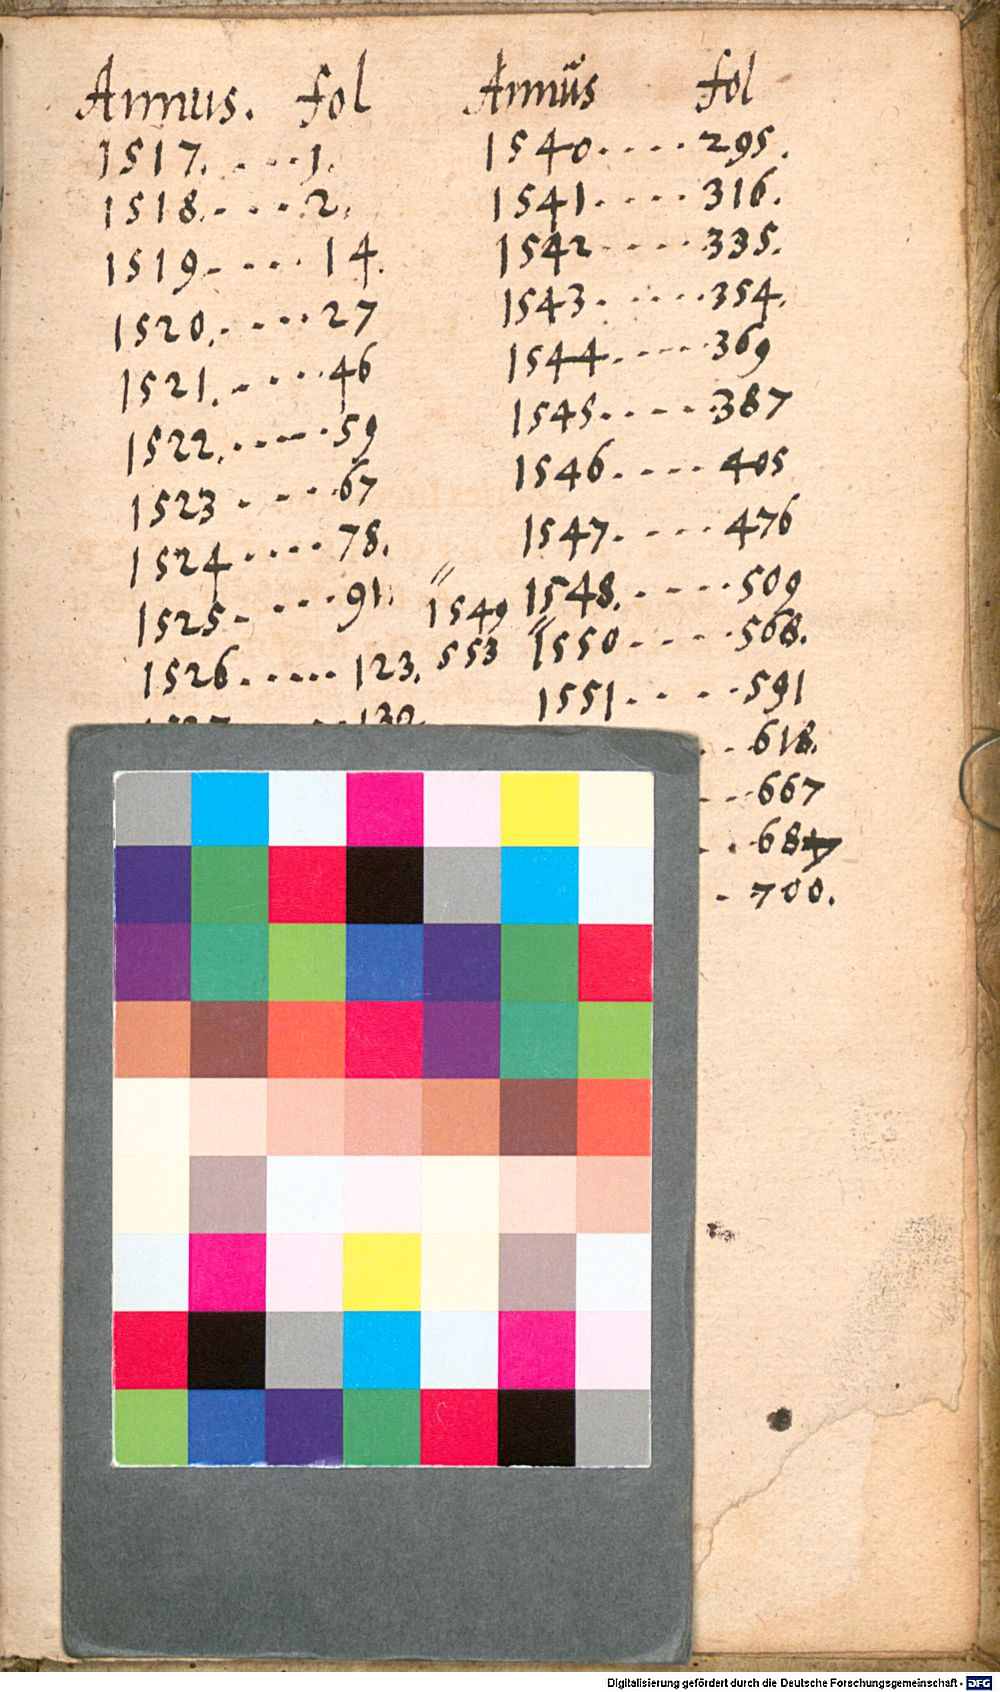 Annus. fol
1517. . . . . 1.
1518. . . . . 2.
1519. . . . . 14.
1520. . . . . 27
1521. . . . . 46
1522. . . . . 59
1523 . . . . 67
1524 . . . . 78.
1525 . . . . 91.
1526 . . . . . 123.
Annus fol
1540. . . . . 295.
1541. . . . . 316.
1542 . . . . 335.
1543. . . . . 354.
1544. . . . . 369
1545. . . . . 387
1546. . . . . 405
1547. . . . . 476
1548. . . . . 509
1549
553
1550 . . . . 568.
1551 . . . . 591
. . 618.
. . 667
. . 684
. 700.
Digitalisierung gefördert durch die Deutsche Forschungsgemeinschaft - DFG